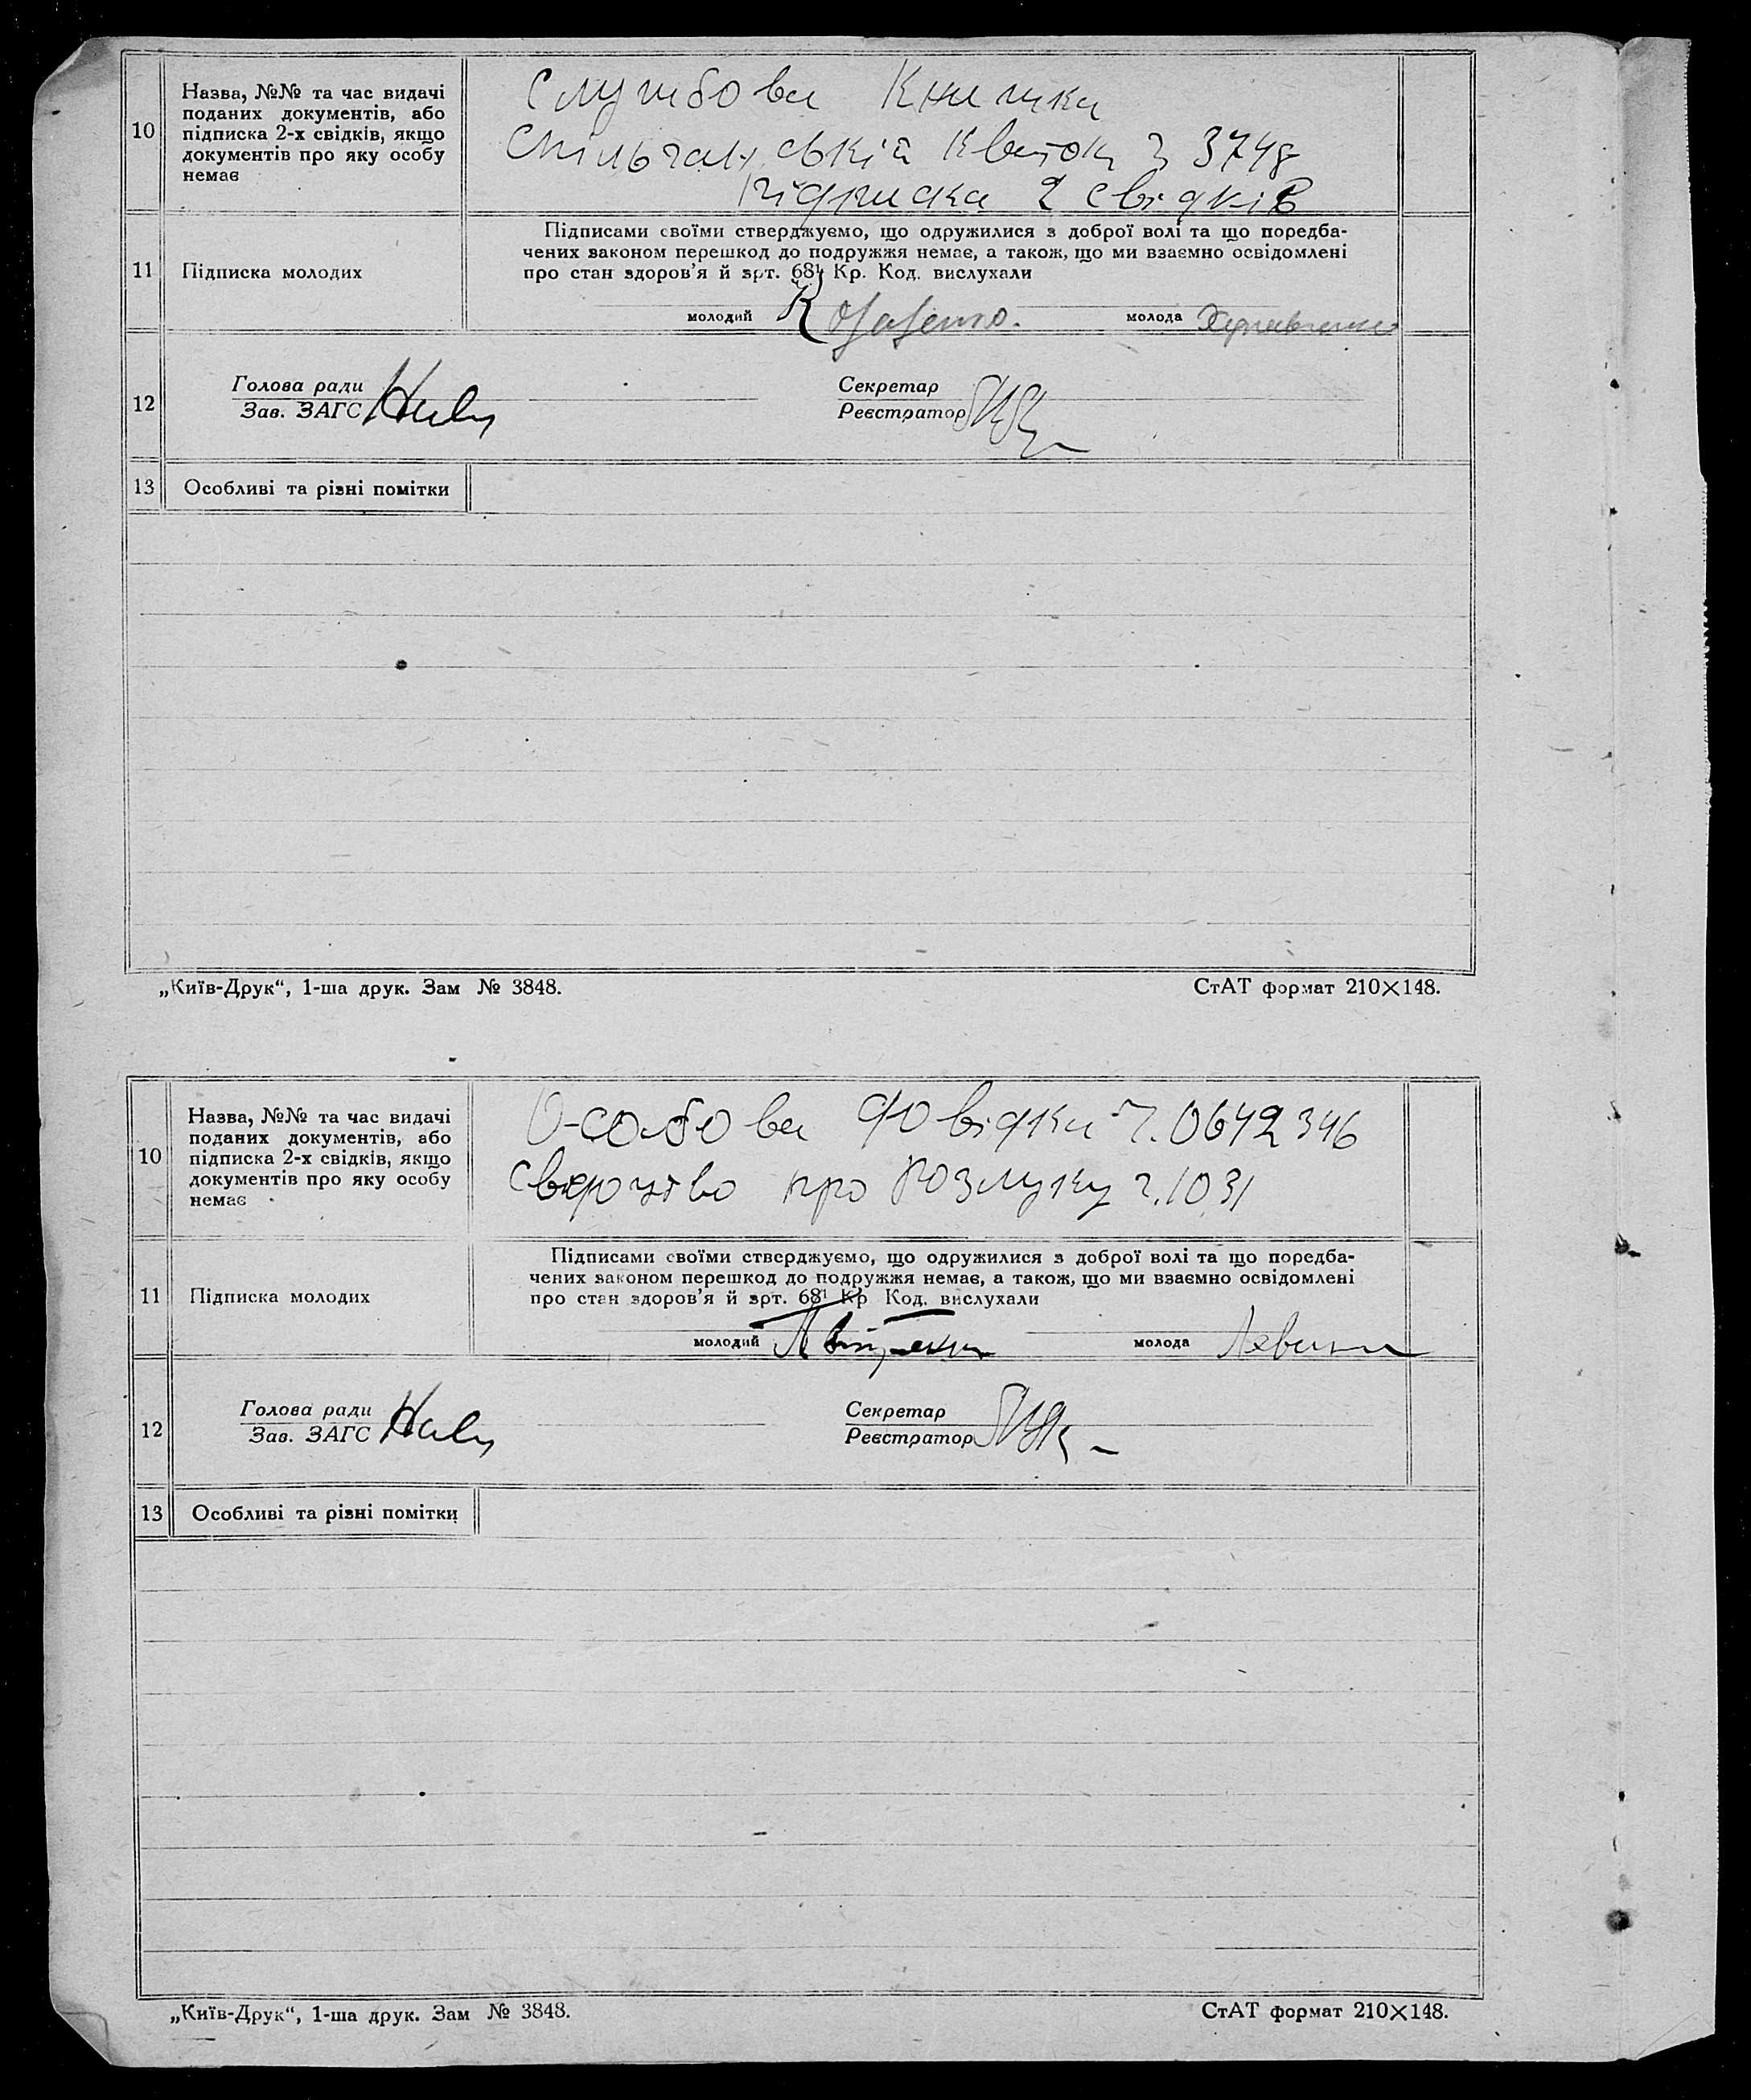 10
Назва, №№ та час видачі
поданих документів, або
підписка 2-х свідків, якщо
документів про яку особу
немає
Службова Книжка
Спільчанський Квиток 3748
підписка 2 свідків
11
Підписка молодих
Підписами своїми стверджуємо, що одружилися з доброї волі та що поредба-
чених законом перешкод до подружжя немає, а також, що ми взаємно освідомлені
про стан здоров'я й врт. 68¹ Кр. Код. вислухали
молодий
молода
12
Голова ради
Зав. ЗАГС
Секретар
Реєстратор
13
Особливі та різні помітки
„Київ-Друк“, 1-ша друк. Зам № 3848.
СтАТ формат 210×148.
10
Назва, №№ та час видачі
поданих документів, або
підписка 2-х свідків, якщо
документів про яку особу
немає
Особова довідка ч. 0642346
свідоцтво про розлуку ч. 1031
11
Підписка молодих
Підписами своїми стверджуємо, що одружилися з доброї волі та що поредба-
чених законом перешкод до подружжя немає, а також, що ми взаємно освідомлені
про стан здоров'я й врт. 68¹ Кр Код. вислухали
молодий
молода
12
Голова ради
Зав. ЗАГС
Секретар
Реєстратор
13
Особливі та різні помітки
„Київ-Друк“, 1-ша друк. Зам № 3848.
СтАТ формат 210×148.